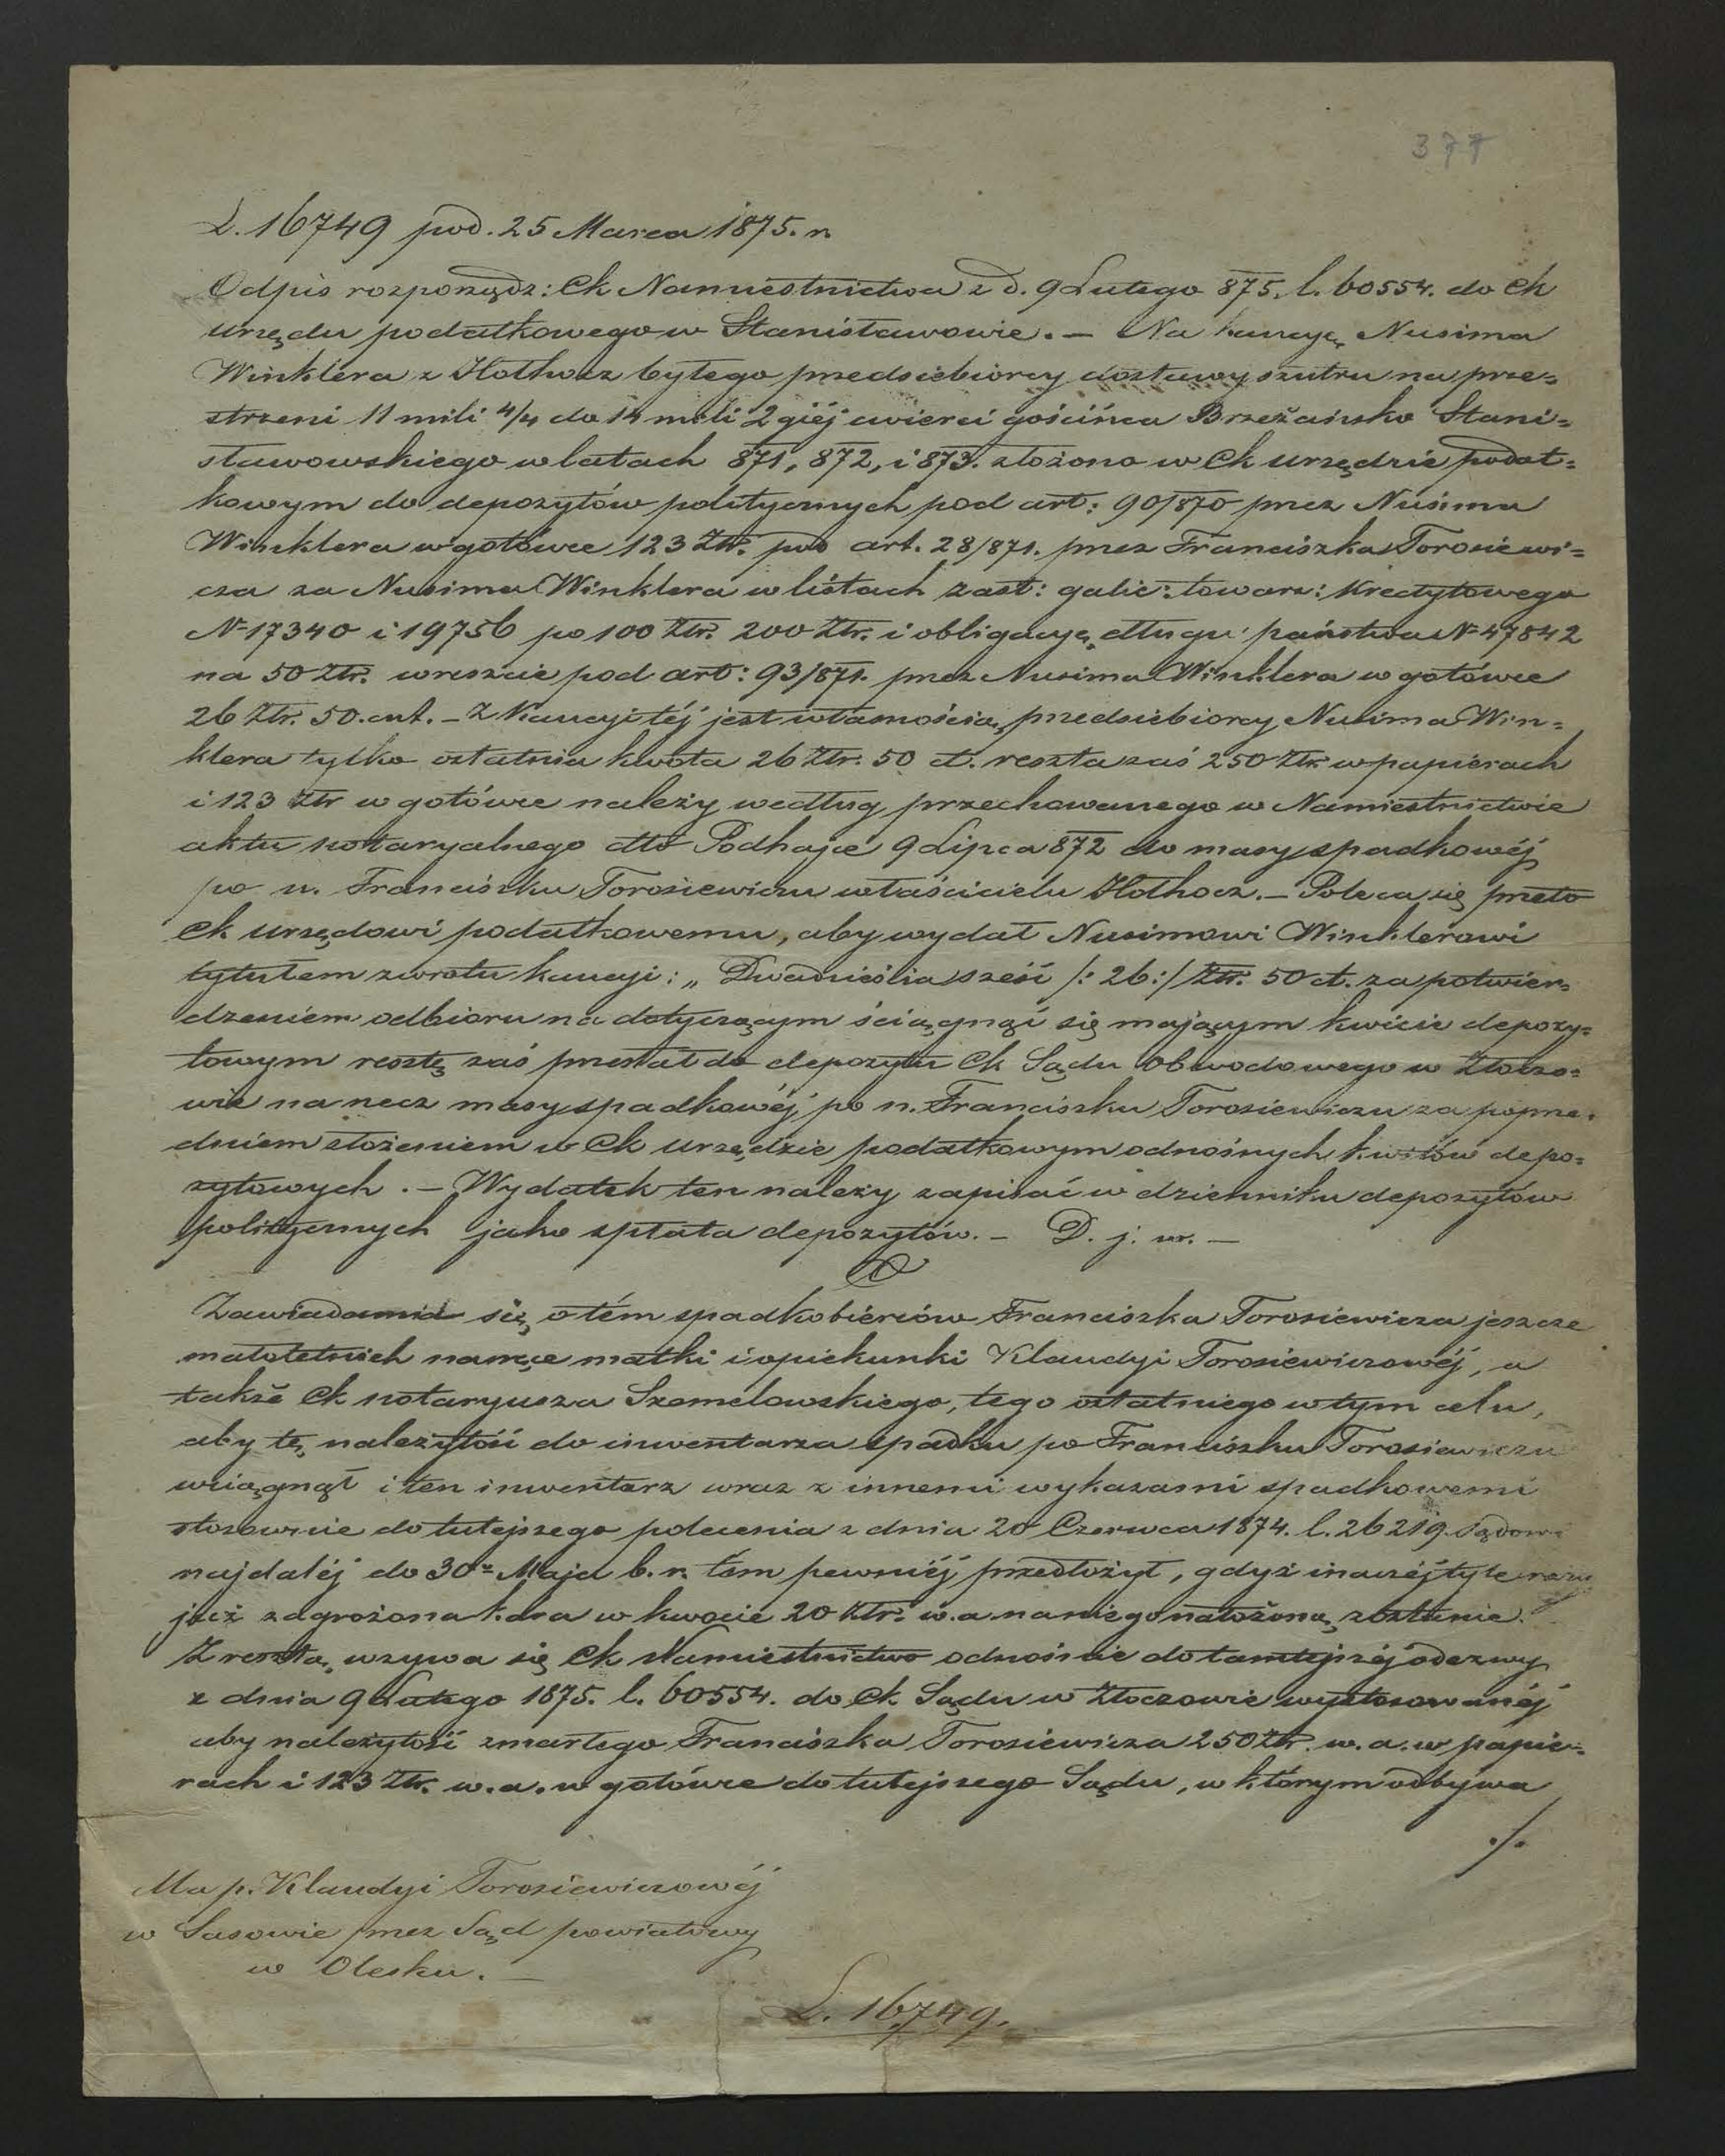 377
L. 16749 pod. 25 Marca 1875. r.
Odpis rozporządz: Ck Namiestnictwa z d. 9 Lutego 875. l. 60554. do Ck
urzędu podatkowego w Stanisławowie. — Na kaucyę Nusima
Winklera z Hołhocz byłego przedsiebiorcy dostawy szutru na prze=
strzeni 11 mili 4/4 do 14 mili 2giéj cwierci gościńca Brzeżańsko Stani=
sławowskiego w latach 871, 872, i 873. złożono w Ck urzędzie podat=
kowym do depozytów politycznych pod art: 90/870 przez Nusima
Winklera w gotówce 123 Ztr. pod art. 28/871. przez Franciszka Torosiewi=
cza za Nusima Winklera w listach zast: galic: towarz: kredytowego
N 17340 i 19756 po 100 Ztr. 200 Ztr. i obligacyę długu państwa N 47842
na 50 Ztr. wreszcie pod art: 93/871. przez Nusima Winklera w gotówce
26 Ztr. 50. cnt. — Z kaucyi téj jest własnością przedsiebiorcy Nusima Win=
klera tylko ostatnia kwota 26 Ztr. 50 ct. reszta zaś 250 Ztr w papierach
i 123 Ztr w gotówce należy według przechowanego w Namiestnictwie
aktu notaryalnego dto Podhajce 9 Lipca 872 do masy spadkowéj
po ś. Franciszku Torosiewiczu właścicielu Hołhocz. — Poleca się przeto
Ck urzędowi podatkowemu, aby wydał Nusimowi Winklerowi
tytułem zwrotu kaucyi: „ Dwadzieścia sześć /: 26 :/ Ztr. 50 ct. za potwier=
dzeniem odbioru na dotyczącym ściągnąć się mającym kwicie depozy=
towym resztę zaś przesłał do depozytu Ck Sądu Obwodowego w Złoczo=
wie na rzecz masy spadkowéj po n. Franciszku Torosiewiczu za poprze=
dniem złożeniem w Ck urzędzie podatkowym odnośnych kwitów depo=
zytowych. — Wydatek ten należy zapisać w dzienniku depozytów
politycznych jako spłata depozytów. — D. j. w. —
Zawiadamia się o tém spadkobierców Franciszka Torosiewicza jeszcze
małoletnich na ręce matki i opiekunki Klaudyi Torosiewiczowéj, a
także Ck notaryusza Szemelowskiego, tego ostatniego w tym celu,
aby tę należytość do inwentarza spadku po Franciszku Torosiewiczu
wciągnął i ten inwentarz wraz z innemi wykazami spadkowemi
stosownie do tutejszego polecenia z dnia 20 Czerwca 1874. l. 26219. Sądowi
najdaléj do 30= Maja b. r. tém pewniéj przedłożył, gdyż inaczéj tyle razy
już zagrożona kara w kwocie 20 Ztr. w. a. na niego nałożoną zostanie.
Z resztą wzywa się Ck Namiestnictwo odnośnie do tamtejszéj odezwy
z dnia 9 Lutego 1875. l. 60554. do Ck Sądu w Złoczowie wystosowanéj
aby należytość zmarłego Franciszka Torosiewicza 250 Ztr. w. a. w papie=
rach i 123 Ztr. w. a. w gotówce do tutejszego Sądu, w którym odbywa
./.
Na p. Klaudyi Torosiewiczowéj
w Sasowie przez Sąd powiatowy
w Olesku. —
L. 16749.